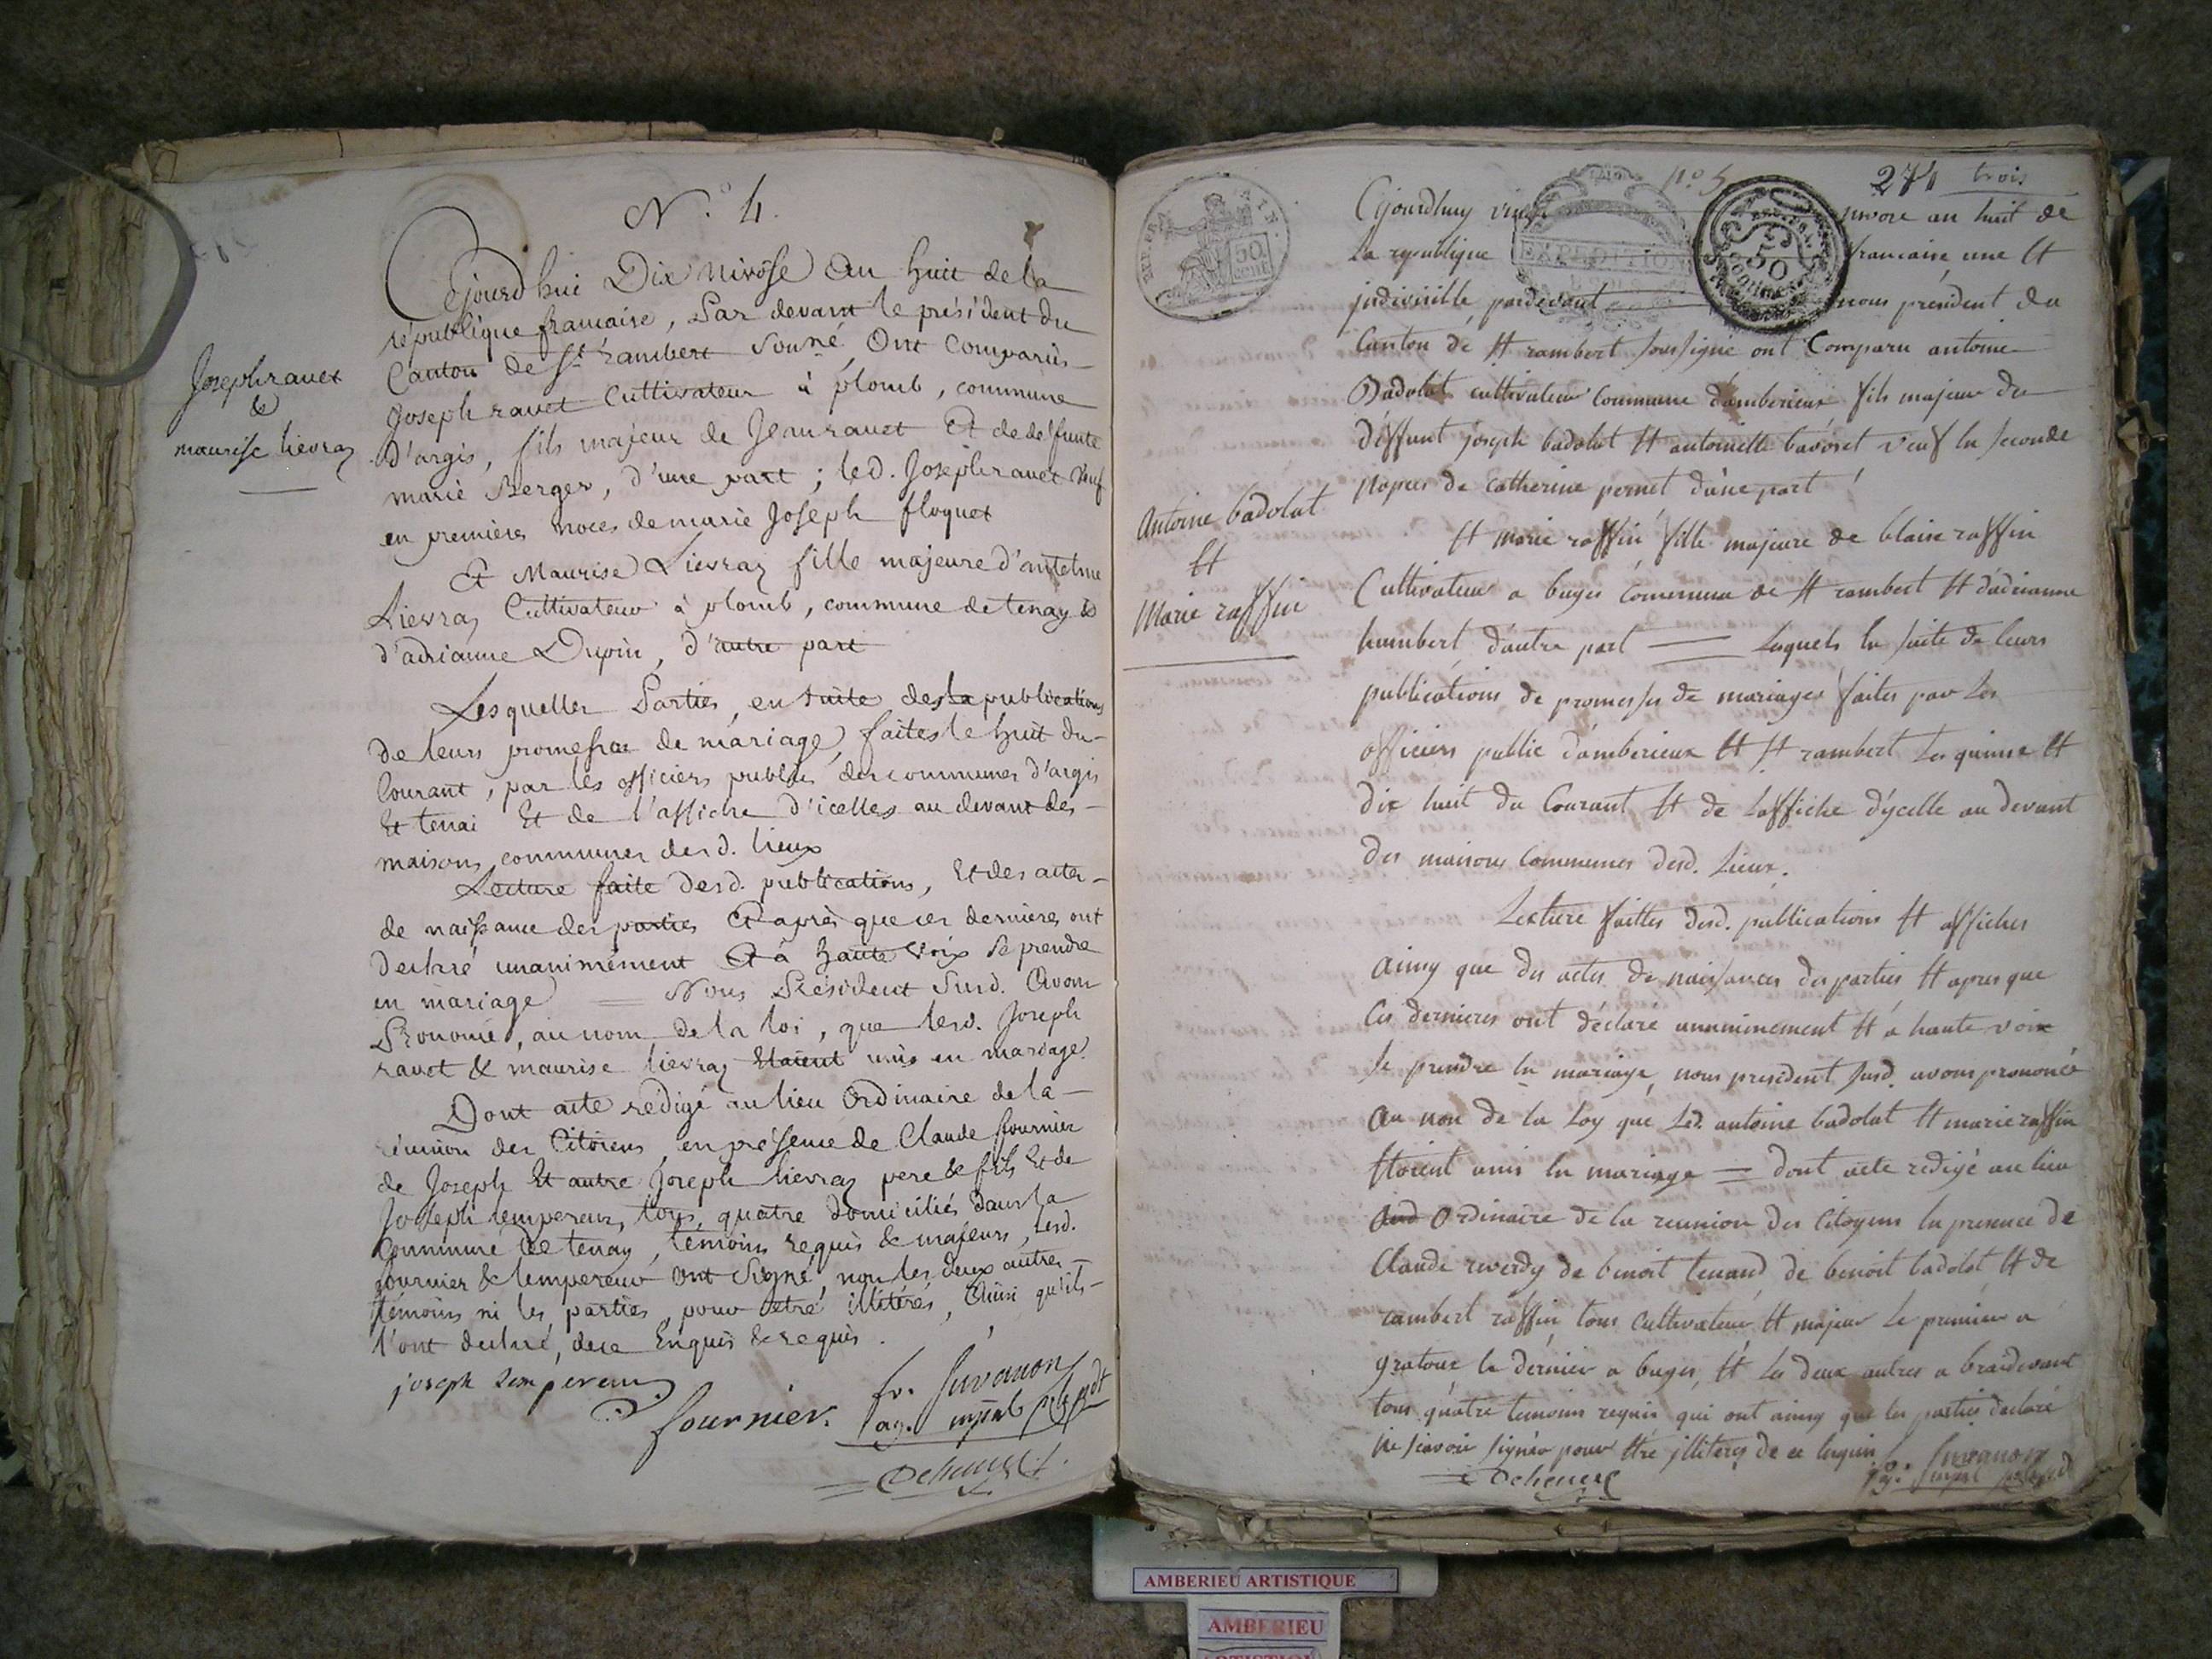 N.° 4.
Cejourd'hui Dix nivôse an huit de la
république francaise, Par devant le président du
Canton de St. rambert Sous.né Ont Comparus
Joseph ravet Cultivateur à plomb, commune
d'argis, fils majeur de Jean ravet Et de defunte
marie Berger, d'une part ; led. Joseph ravet veuf
en premières noces de marie Joseph floquet
Joseph ravet
&
maurise lievraz
Et Maurise Lievraz fille majeure d'antelme
Lievraz Cultivateur à plomb, commune de tenay &
d'adrianne Dupin, d'autre part
Lesquelles Parties, en suite des la publications
de leurs promesses de mariage, faites le huit du
Courant, par les officiers publics des communes d'argis
Et tenai Et de l'affiche d'icelles au devant des
maisons communes desd. lieux
Lecture faite desd. publications, Et des actes
de naissance des parties Et après que ces dernieres ont
declaré unanimement Et à haute voix se prendre
en mariage = Nous Président Susd. Avons
Prononcé, au nom de la loi, que lesd. Joseph
ravet & maurise lievraz Etaient unis en mariage.
Dont acte redigé au lieu Ordinaire de la
réunion des Citoiens, en présence de Claude fournier
de Joseph Et autre Joseph lievraz pere & fils Et de
Joseph lempereur, tous quatre domiciliés dans la
Commune de tenay, témoins requis & majeurs, lesd.
fournier & lempereur Ont Signé, non les deux autres
témoins ni les parties, pour être illitérés, Ainsi qu'ils
l'ont declaré, de ce Enquis & requis.
joseph lempereur
fournier.
fr. Juvanon
ag. mpal pdt
N.° 5
271 trois
EXPEDITION
50 cent
50
Cejourdhuy vingt nivose an huit de
la republique francaise une Et
indivisible, pardevant nous président du
Canton de St rambert soussigné ont Comparu antoine
Badolat cultivateur Commune d'amberieux fils majeur du
déffunt joseph badolat Et antoinette bavoset veuf En seconde
nopces de Catherine pernet d'une part
Antoine badolat
Et
Marie raffin
Et marie raffin fille majeure de blaise raffin
Cultivateur a buges Commune de St rambert Et d'adrianne
humbert, d'autre part = Lesquels En suite de leurs
publications de promesses de mariages faites par les
officiers public d'amberieux Et St rambert Les quinse Et
dix huit du Courant Et de L'affiche d'ycelle au devant
des maisons Communes desd. Lieux.
Lecture faittes desd. publications Et affiches
ainsy que des actes de naissances des parties Et apres que
Ces dernieres ont déclaré unanimement Et a haute voix
se prendre En mariage, nous president susd. avons prononcé
au nom de la Loy que Led. antoine badolat Et marie raffin
Etoient unis En mariage = dont acte redigé au lieu
Ordinaire de la reunion des Citoyens En presence de
Claude reverdy de benoit tenand de benoit badolat Et de
rambert raffin tous cultivateur Et majeur Le premier a
gratoux le dernier a buges, Et Les deux autres a breidevent
tous quatre temoins requis qui ont ainsy que les parties déclaré
ne scavoir signér pour Etre jlliterés de ce Enquis
fr. Juvanon
ag. mpal pdt
AMBERIEU ARTISTIQUE
AMBERIEU
ARTISTIQUE